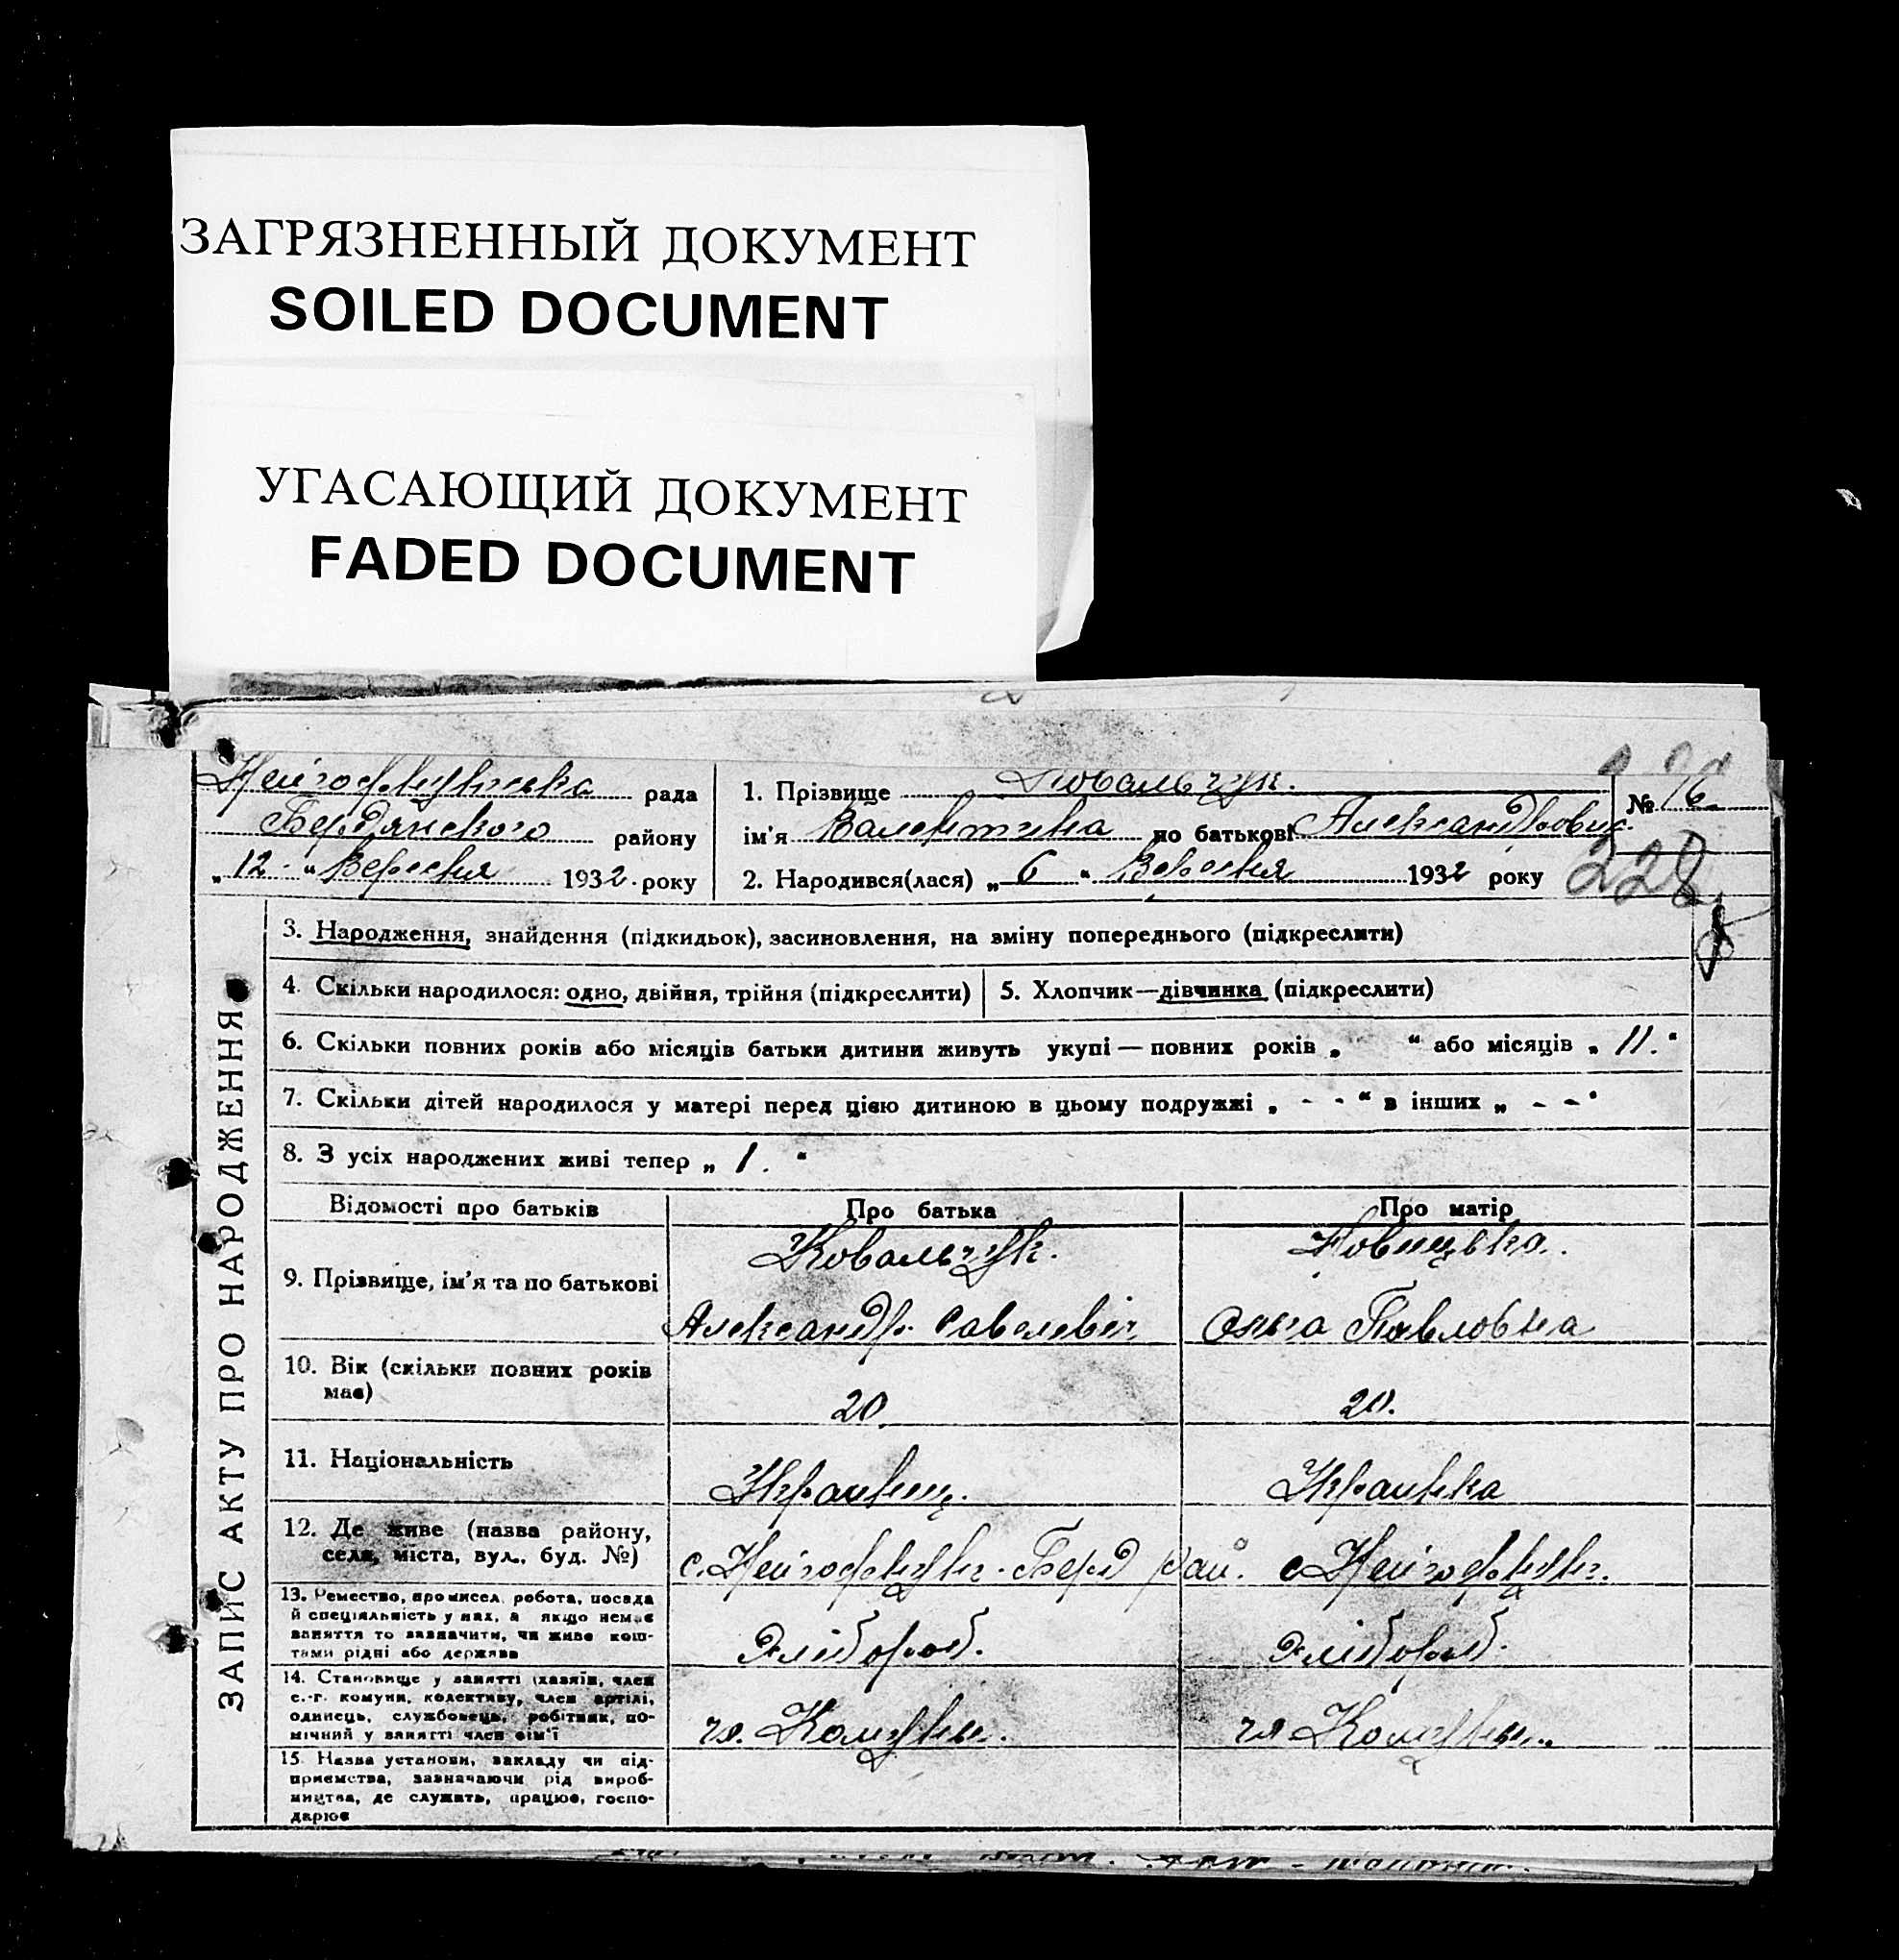 ЗАГРЯЗНЕННЫЙ ДОКУМЕНТ
SOILED DOCUMENT
УГАСАЮЩИЙ ДОКУМЕНТ
FADED DOCUMENT
рада
Бердянского району
„ 12 " Вересня 1932 року
1. Прізвище Ковальчук.
ім'я Валентина по батькові Александровн.
2. Народився(лася) „ 6 " Вересня 1932 року
№ 76
228
ЗАПИС АКТУ ПРО НАРОДЖЕННЯ
3. Народження, знайдення (підкидьок), засиновлення, на зміну попереднього (підкреслити)
4. Скільки народилося: одно, двійня, трійня (підкреслити)
5. Хлопчик—дівчинка (підкреслити)
6. Скільки повних років або місяців батьки дитини живуть укупі — повних років „ " або місяців „ 11. "
7. Скільки дітей народилося у матері перед цією дитиною в цьому подружжі „ - - " в інших „ - - "
8. З усіх народжених живі тепер „ 1. "
Відомості про батьків Про батька Про матір
9. Прізвище, ім'я та по батькові
Ковальчук.
Александр Савелевіч
Новицька.
Ольга Павловна
10. Вік (скільки повних років має)
20.
20.
11. Національність
Украинец.
Украинка
12. Де живе (назва району,
села, міста, вул., буд. №)
Берд рай.
13. Ремество, промисел, робота, посада
й спеціяльність у них, а якщо немає
заняття то зазначити, чи живе кош-
тами рідні або держави
Хлібороб.
Хлібороб.
14. Становище у занятті (хазяїн, член
с.-г. комуни, колективу, член артілі,
одинець, службовець, робітник, по-
мічний у занятті член сім'ї
чл. Комуни.
чл Комуни.
15. Назва установи, закладу чи під-
приємства, зазначаючи рід вироб-
ництва, де служить, працює, госпо-
дарює